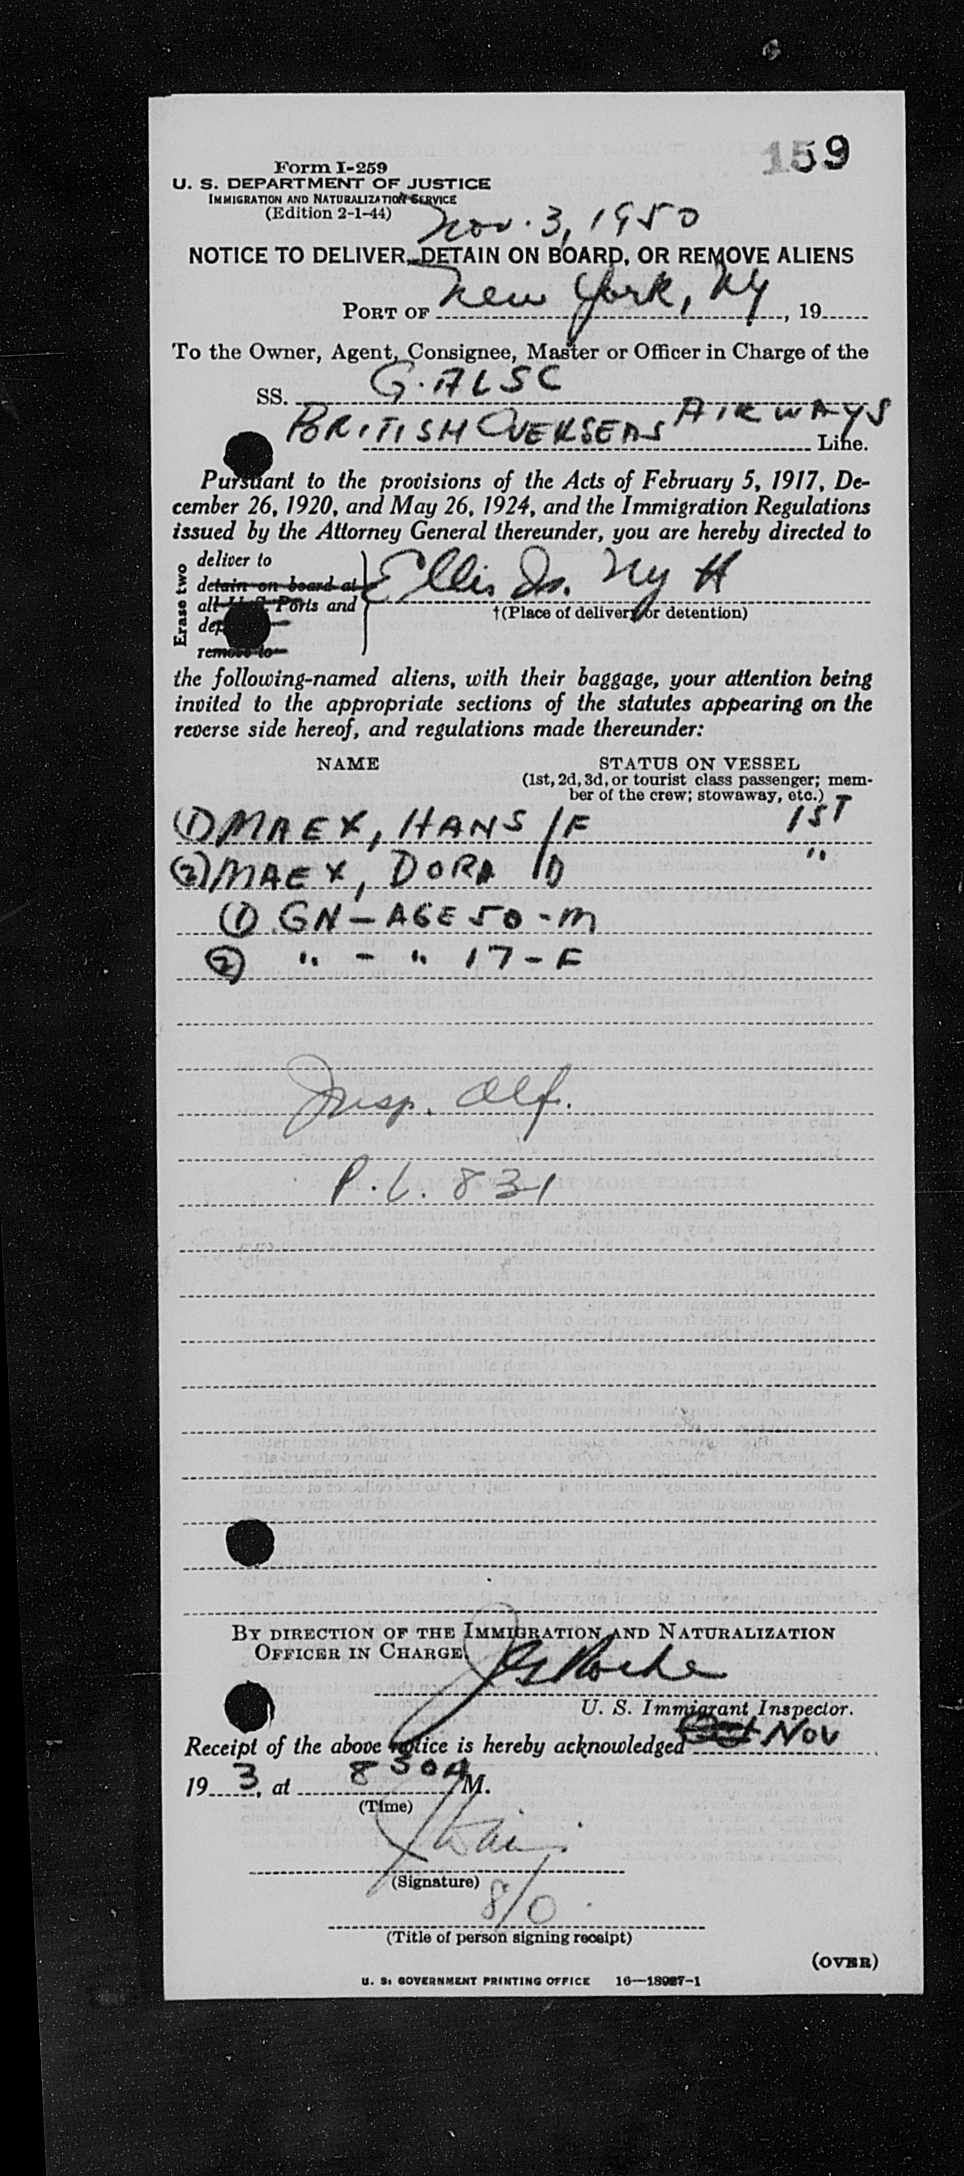 159
Form I-259
U. S. DEPARTMENT OF JUSTICE
IMMIGRATION AND NATURALIZATION SERVICE
(Edition 2-1-44)
Nov. 3, 1950
NOTICE TO DELIVER, DETAIN ON BOARD, OR REMOVE ALIENS
PORT OF New York, NY, 19
To the Owner, Agent, Consignee, Master or Officer in Charge of the
SS. G. ALSC
BRITISH OVERSEAS AIRWAYS Line.
Pursuant to the provisions of the Acts of February 5, 1917, De-
cember 26, 1920, and May 26, 1924, and the Immigration Regulations
issued by the Attorney General thereunder, you are hereby directed to
Erase two
deliver to
detain on board at
all U. S. Ports and
remove to
Ellis Is. NY H
†(Place of delivery or detention)
the following-named aliens, with their baggage, your attention being
invited to the appropriate sections of the statutes appearing on the
reverse side hereof, and regulations made thereunder:
NAME STATUS ON VESSEL
(1st, 2d, 3d, or tourist class passenger; mem-
ber of the crew; stowaway, etc.)
(1) MAEX, HANS /F 1ST
(2) MAEX, DORA /D "
(1) GN - AGE 50 - M
(2) " - " 17 - F
Insp.
P.L. 831
BY DIRECTION OF THE IMMIGRATION AND NATURALIZATION
OFFICER IN CHARGE
U. S. Immigrant Inspector.
Receipt of the above notice is hereby acknowledged Nov
19 3, at 830 A M.
(Time)
(Signature)
8/0
(Title of person signing receipt)
(OVER)
U. S. GOVERNMENT PRINTING OFFICE 16—18987-1